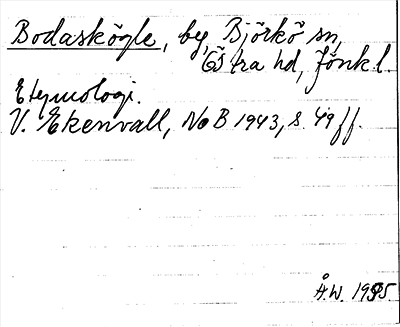 Bodaskögle, by, Björkö sn,
Östra hd, Jönk. l.
Etymologi.
V. Ekenvall, NoB 1943, s. 49 ff.
Å.W. 1995.